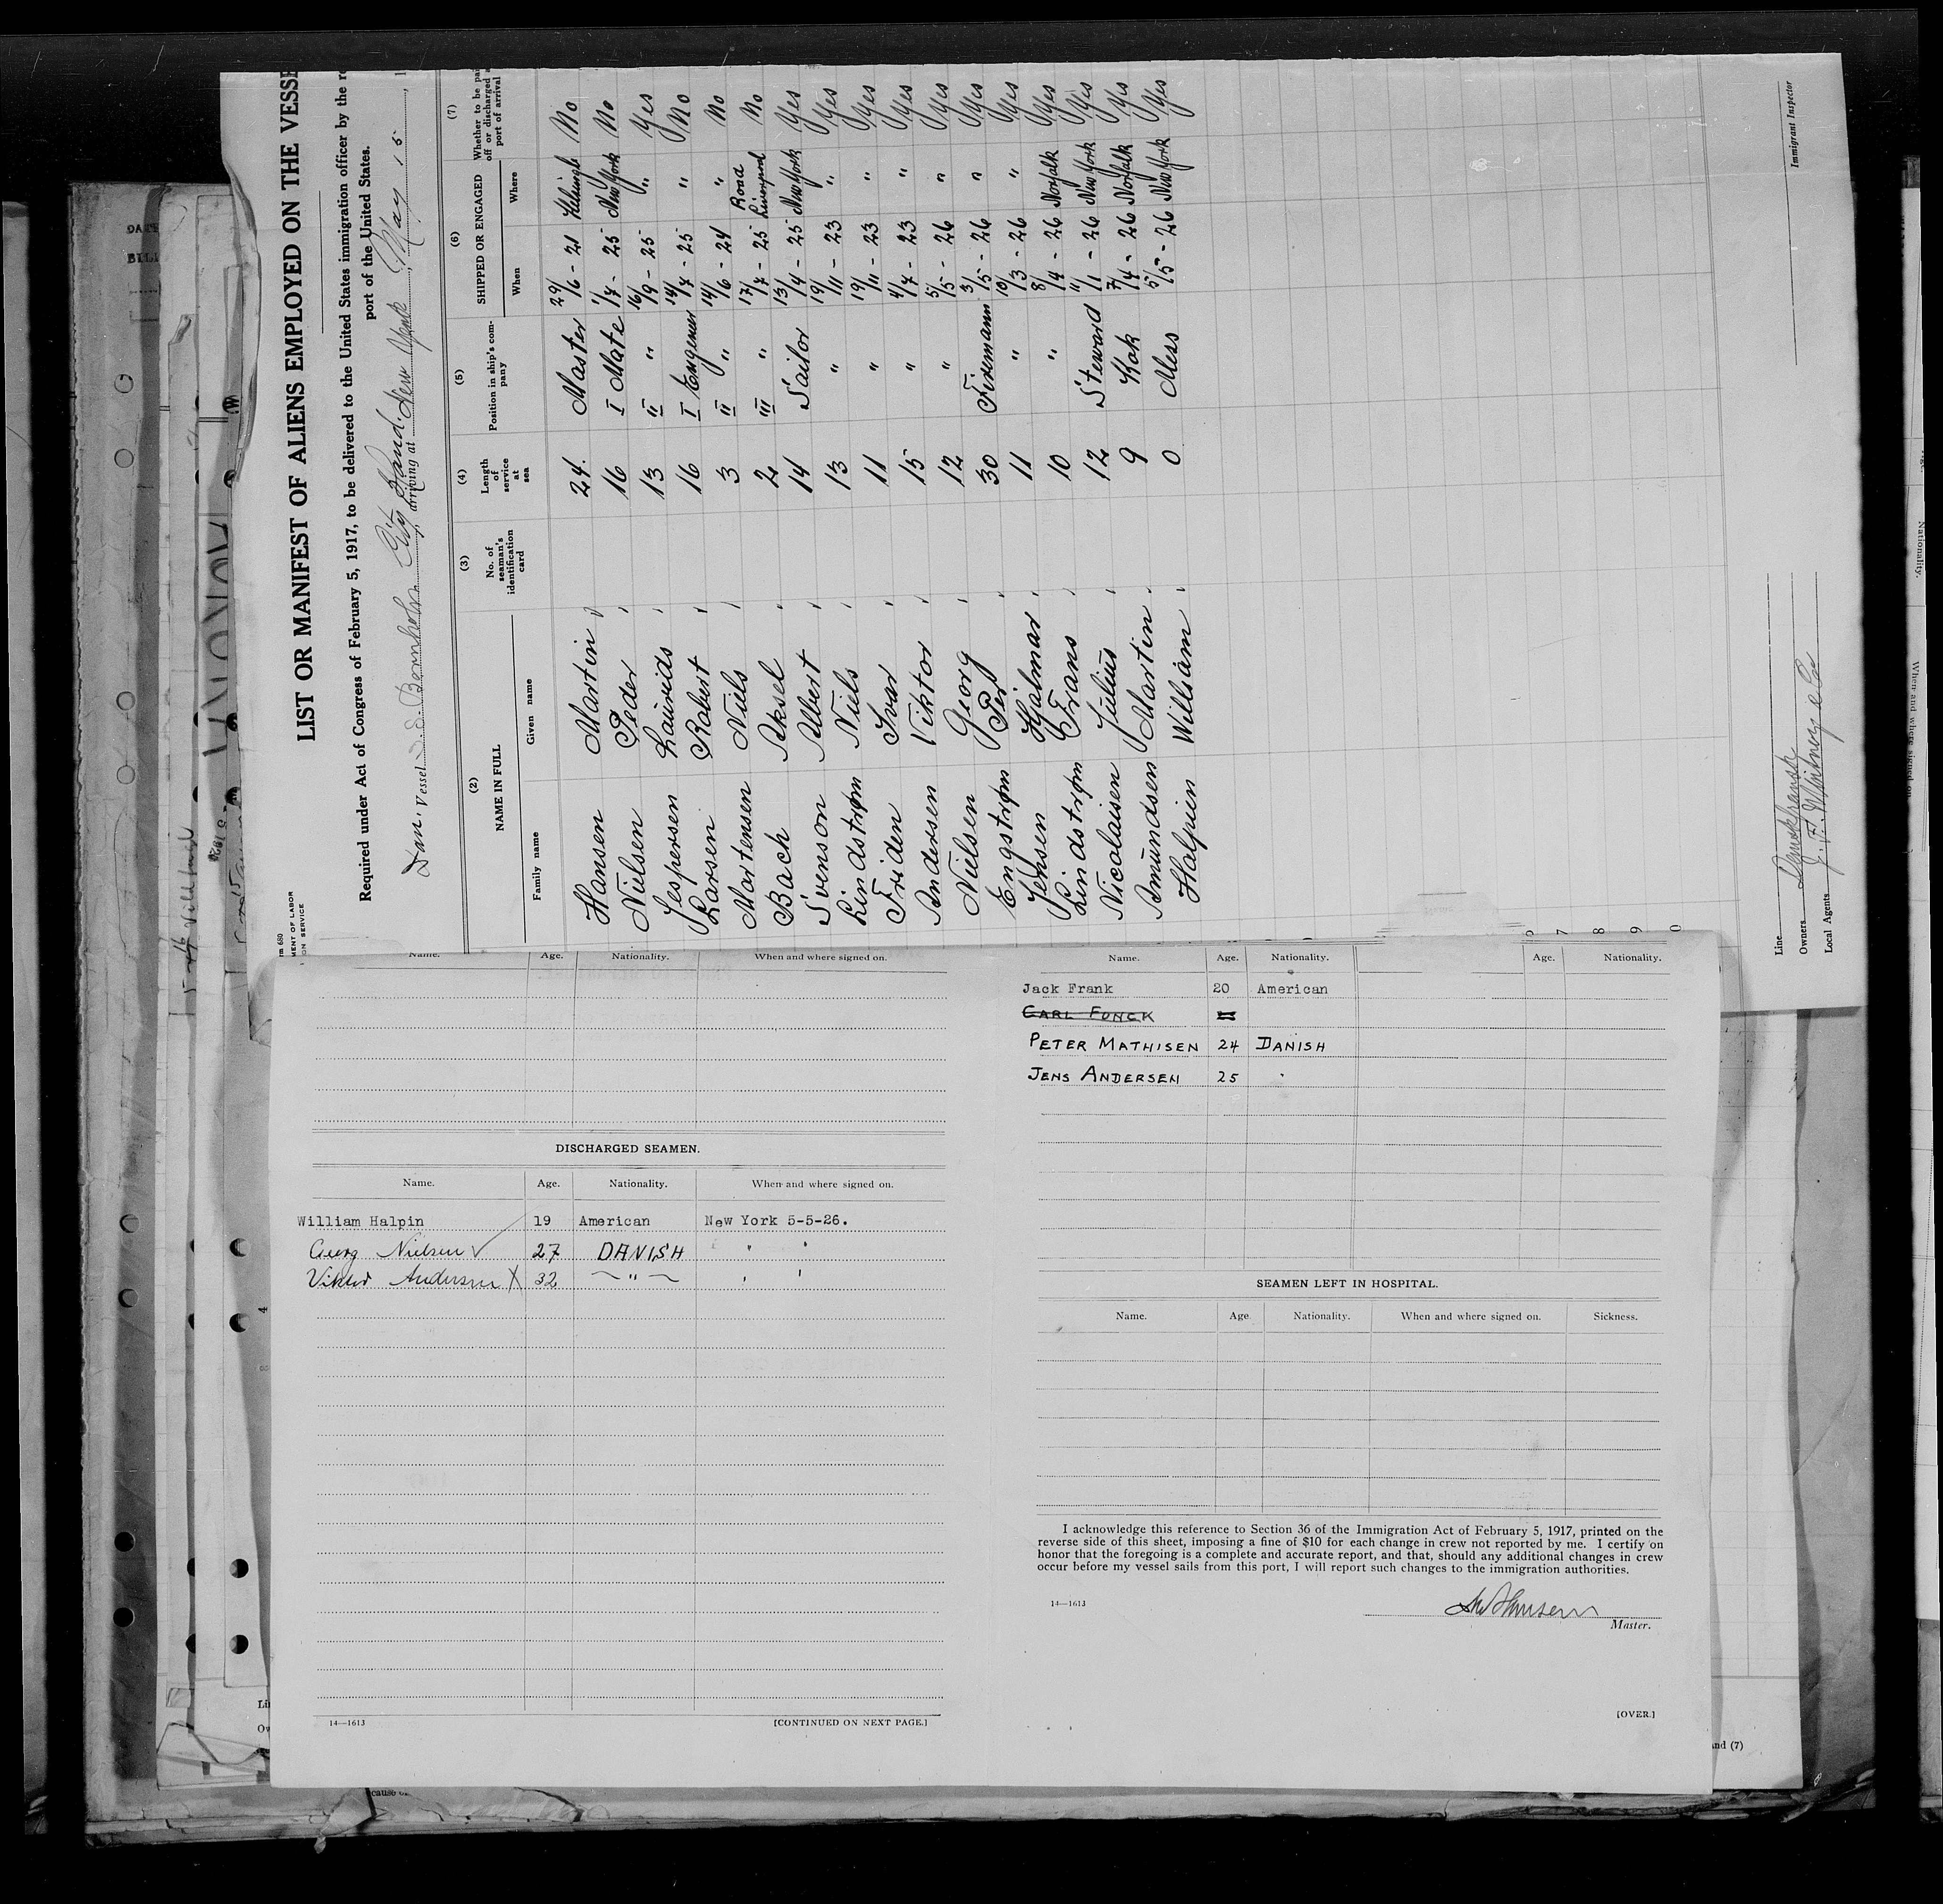 LIST OR MANIFEST OF ALIENS EMPLOYED ON THE VESSE
Required under Act of Congress of February 5, 1917, to be delivered to the United States immigration officer by the re
port of the United States.
Dan. Vessel S.S. Bornholm, arriving at New York, May 15, 1
(2) (3) (4) (5) (6) (7)
NAME IN FULL
Family name Given name
No. of seaman's identification card
Length of service at sea
Position in ship's company
SHIPPED OR ENGAGED
When Where
Whether to be pai off or discharged a port of arrival
Hansen Martin 24 Master 29/6 - 21 No
Nielsen Peder 16 I Mate 1/7 - 25 New York No
Jespersen Laurids 13 II " 16/9 - 25 " Yes
Larsen Robert 16 I Engeneer 14/7 - 25 " No
Martensen Niels 3 II " 14/6 - 24 " No
Bach Aksel 2 III " 17/7 - 25 Road Liverpool No
Svenson Albert 14 Sailor 13/4 - 25 New York Yes
Lindstrøm Niels 13 " 19/11 - 23 " Yes
Friden Ivar 11 " 19/11 - 23 " Yes
Andersen Viktor 15 " 4/7 - 23 " Yes
Nielsen Georg 12 " 5/5 - 26 " Yes
Engstrøm Per 30 Firemann 3/5 - 26 " Yes
Jensen Hjalmar 11 " 10/3 - 26 " Yes
Lindstrøm Frans 10 " 8/4 - 26 Norfolk Yes
Nicolaisen Julius 12 Steward 11/1 - 26 New York Yes
Amundsen Martin 9 Kok 7/4 - 26 Norfolk Yes
Halpien William 0 Mess 5/5 - 26 New York Yes
Line
Owners Dansk fransk
Local Agents J. F. Whitney & Co
Immigrant Inspector
Name. Age. Nationality. When and where signed on.
DISCHARGED SEAMEN.
Name. Age. Nationality. When and where signed on.
William Halpin 19 American New York 5-5-26.
Georg Nielsen 27 DANISH " "
Viktor Andersen 32 " " "
14—1613 [CONTINUED ON NEXT PAGE.]
Name. Age. Nationality. Age. Nationality.
Jack Frank 20 American
CARL FONCK
PETER MATHISEN 24 DANISH
JENS ANDERSEN 25 "
SEAMEN LEFT IN HOSPITAL.
Name. Age. Nationality. When and where signed on. Sickness.
I acknowledge this reference to Section 36 of the Immigration Act of February 5, 1917, printed on the
reverse side of this sheet, imposing a fine of $10 for each change in crew not reported by me. I certify on
honor that the foregoing is a complete and accurate report, and that, should any additional changes in crew
occur before my vessel sails from this port, I will report such changes to the immigration authorities.
14—1613
Master.
[OVER.]
and (7)